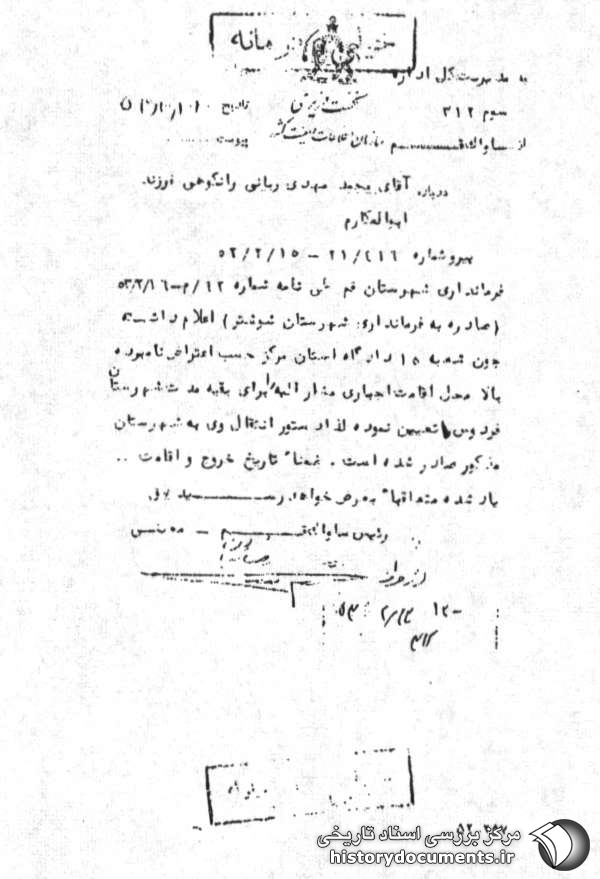 خیلی محرمانه
به مدیریت کل اداره
سوم ۳۱۲
نخست وزیری
تاریخ
سازمان اطلاعات و امنیت کشور
از ساواک قـــم
پیوست
درباره آقای محمد مهدی ربانی رانکوهی فرزند
ابوالمکارم
پیرو شماره ۲۱/۴۱۶ – ۵۲/۲/۱۵
فرمانداری شهرستان قم طی نامه شماره ۱۲/م–۵۳/۲/۱۶
(صادره به فرمانداری شهرستان شوشتر) اعلام داشته
چون شعبه ۱۵ دادگاه استان مرکز حسب اعتراض نامبرده
بالا محل اقامت اجباری مشار الیه برای بقیه مدت شهرستان
فردوس تعیین نموده لذا دستور انتقال وی به شهرستان
مذکور صادر شده است . ضمناً تاریخ خروج و اقامت ..
یاد شده متعاقباً بعرض خواهد رسـید
رئیس ساواک قـــم –
از طرف
۳۱۲
مرکز بررسی اسناد تاریخی
historydocuments.ir